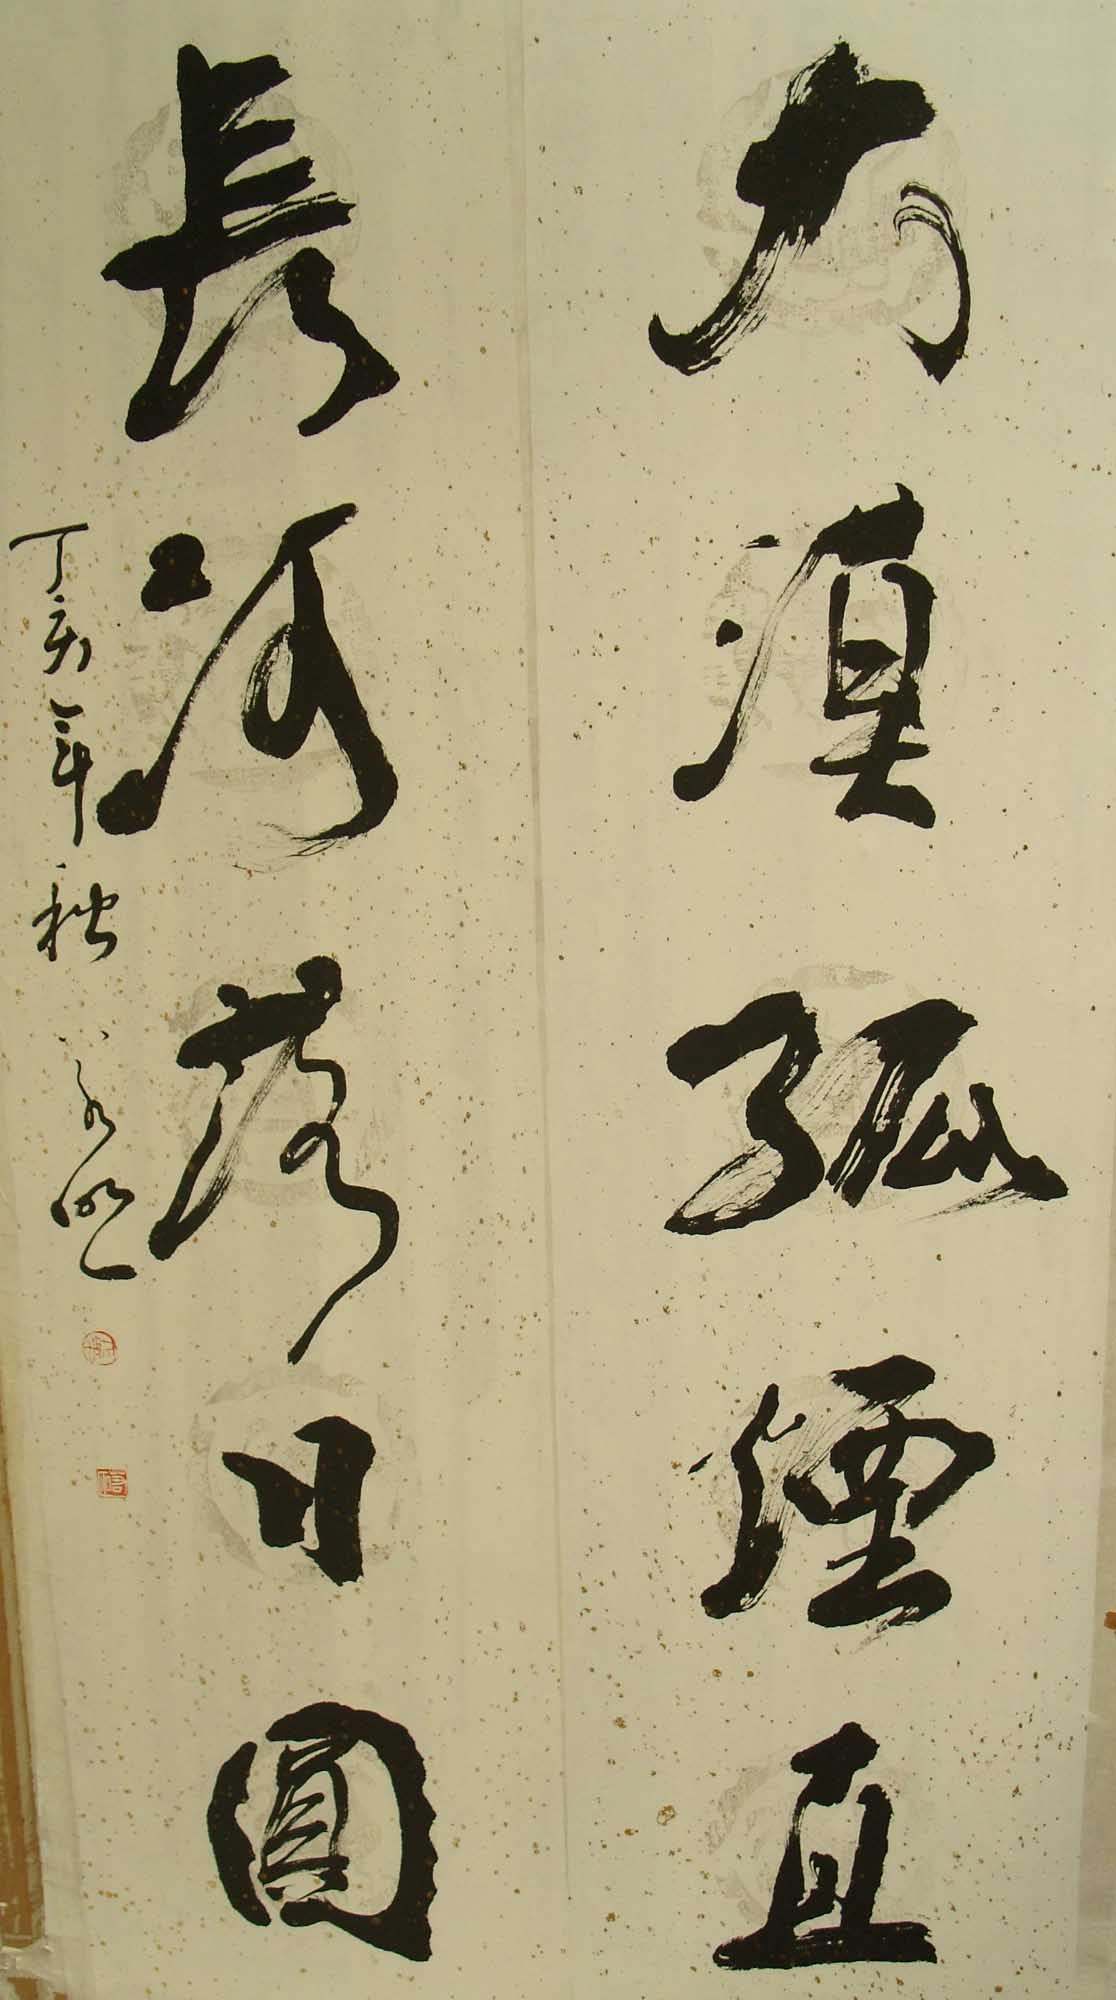 大漠孤煙直
長河落日圓
丁亥年秋 永明